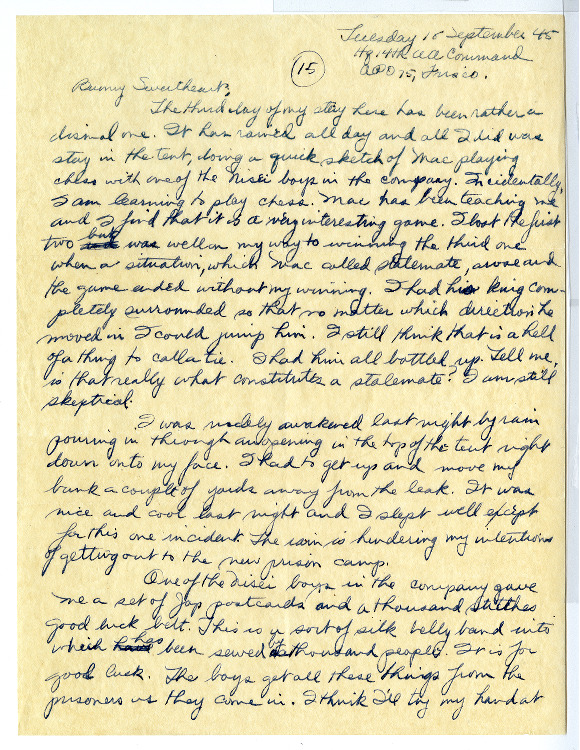 Tuesday 18 September 45
Hq. 14th AA Command
APO 75, Frisco.
15
Bunny Sweetheart,
The third day of my stay here has been rather a
dismal one. It has rained all day and all I did was
stay in the tent, doing a quick sketch of Mac playing
chess with one of the Nisei boys in the company. Incidentally,
I am learning to play chess. Mac has been teaching me
and I find that it is a very interesting game. I lost the first
two but was well on my way to winning the third one
when a situation, which Mac called stalemate, arose and
the game ended without my winning. I had his king com-
pletely surrounded so that no matter which direction he
moved in I could jump him. I still think that is a hell
of a thing to call a tie. I had him all bottled up. Tell me,
is that really what constitutes a stalemate? I am still
skeptical.
I was rudely awakened last night by rain
pouring in through an opening in the top of the tent right
down onto my face. I had to get up and move my
bunk a couple of yards away from the leak. It was
nice and cool last night and I slept well except
for this one incident. The rain is hindering my intentions
of getting out to the new prison camp.
One of the Nisei boys in the company gave
me a set of Jap postcards and a thousand stitches
good luck belt. This is a sort of silk belly band into
which have has been sewed by a thousand people. It is for
good luck. The boys get all these things from the
prisoners as they come in. I think I'll try my hand at